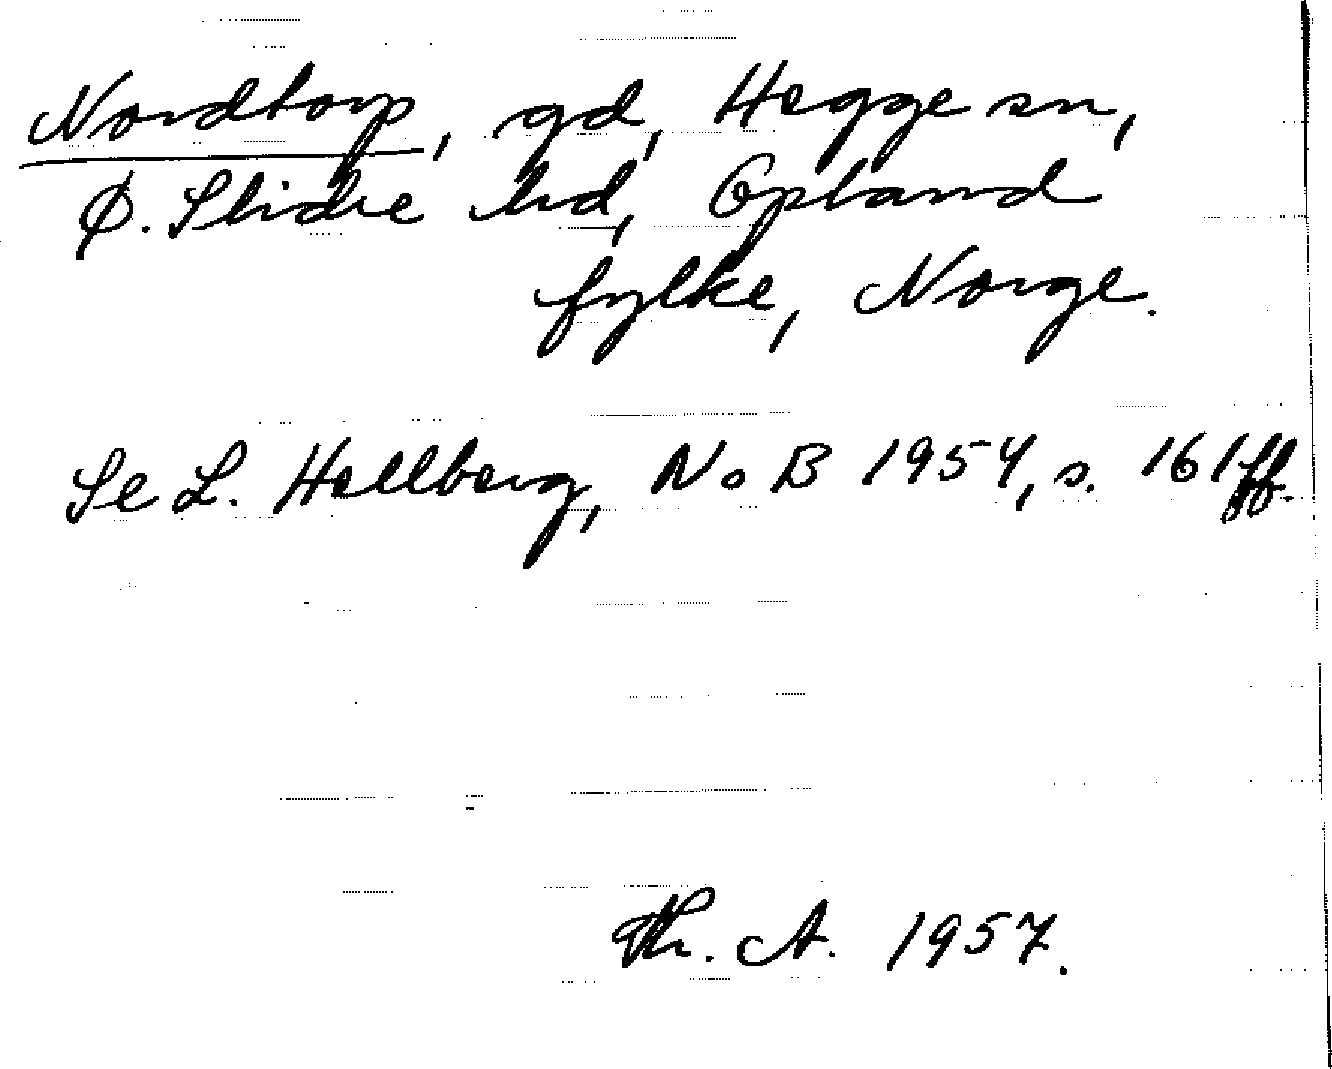 Nordtorp, gd, Hegge sn,
Ø. Slidre hd, Opland
fylke, Norge.
Se L. Hellberg, NoB 1954, s. 161 ff.
Th. A. 1957.